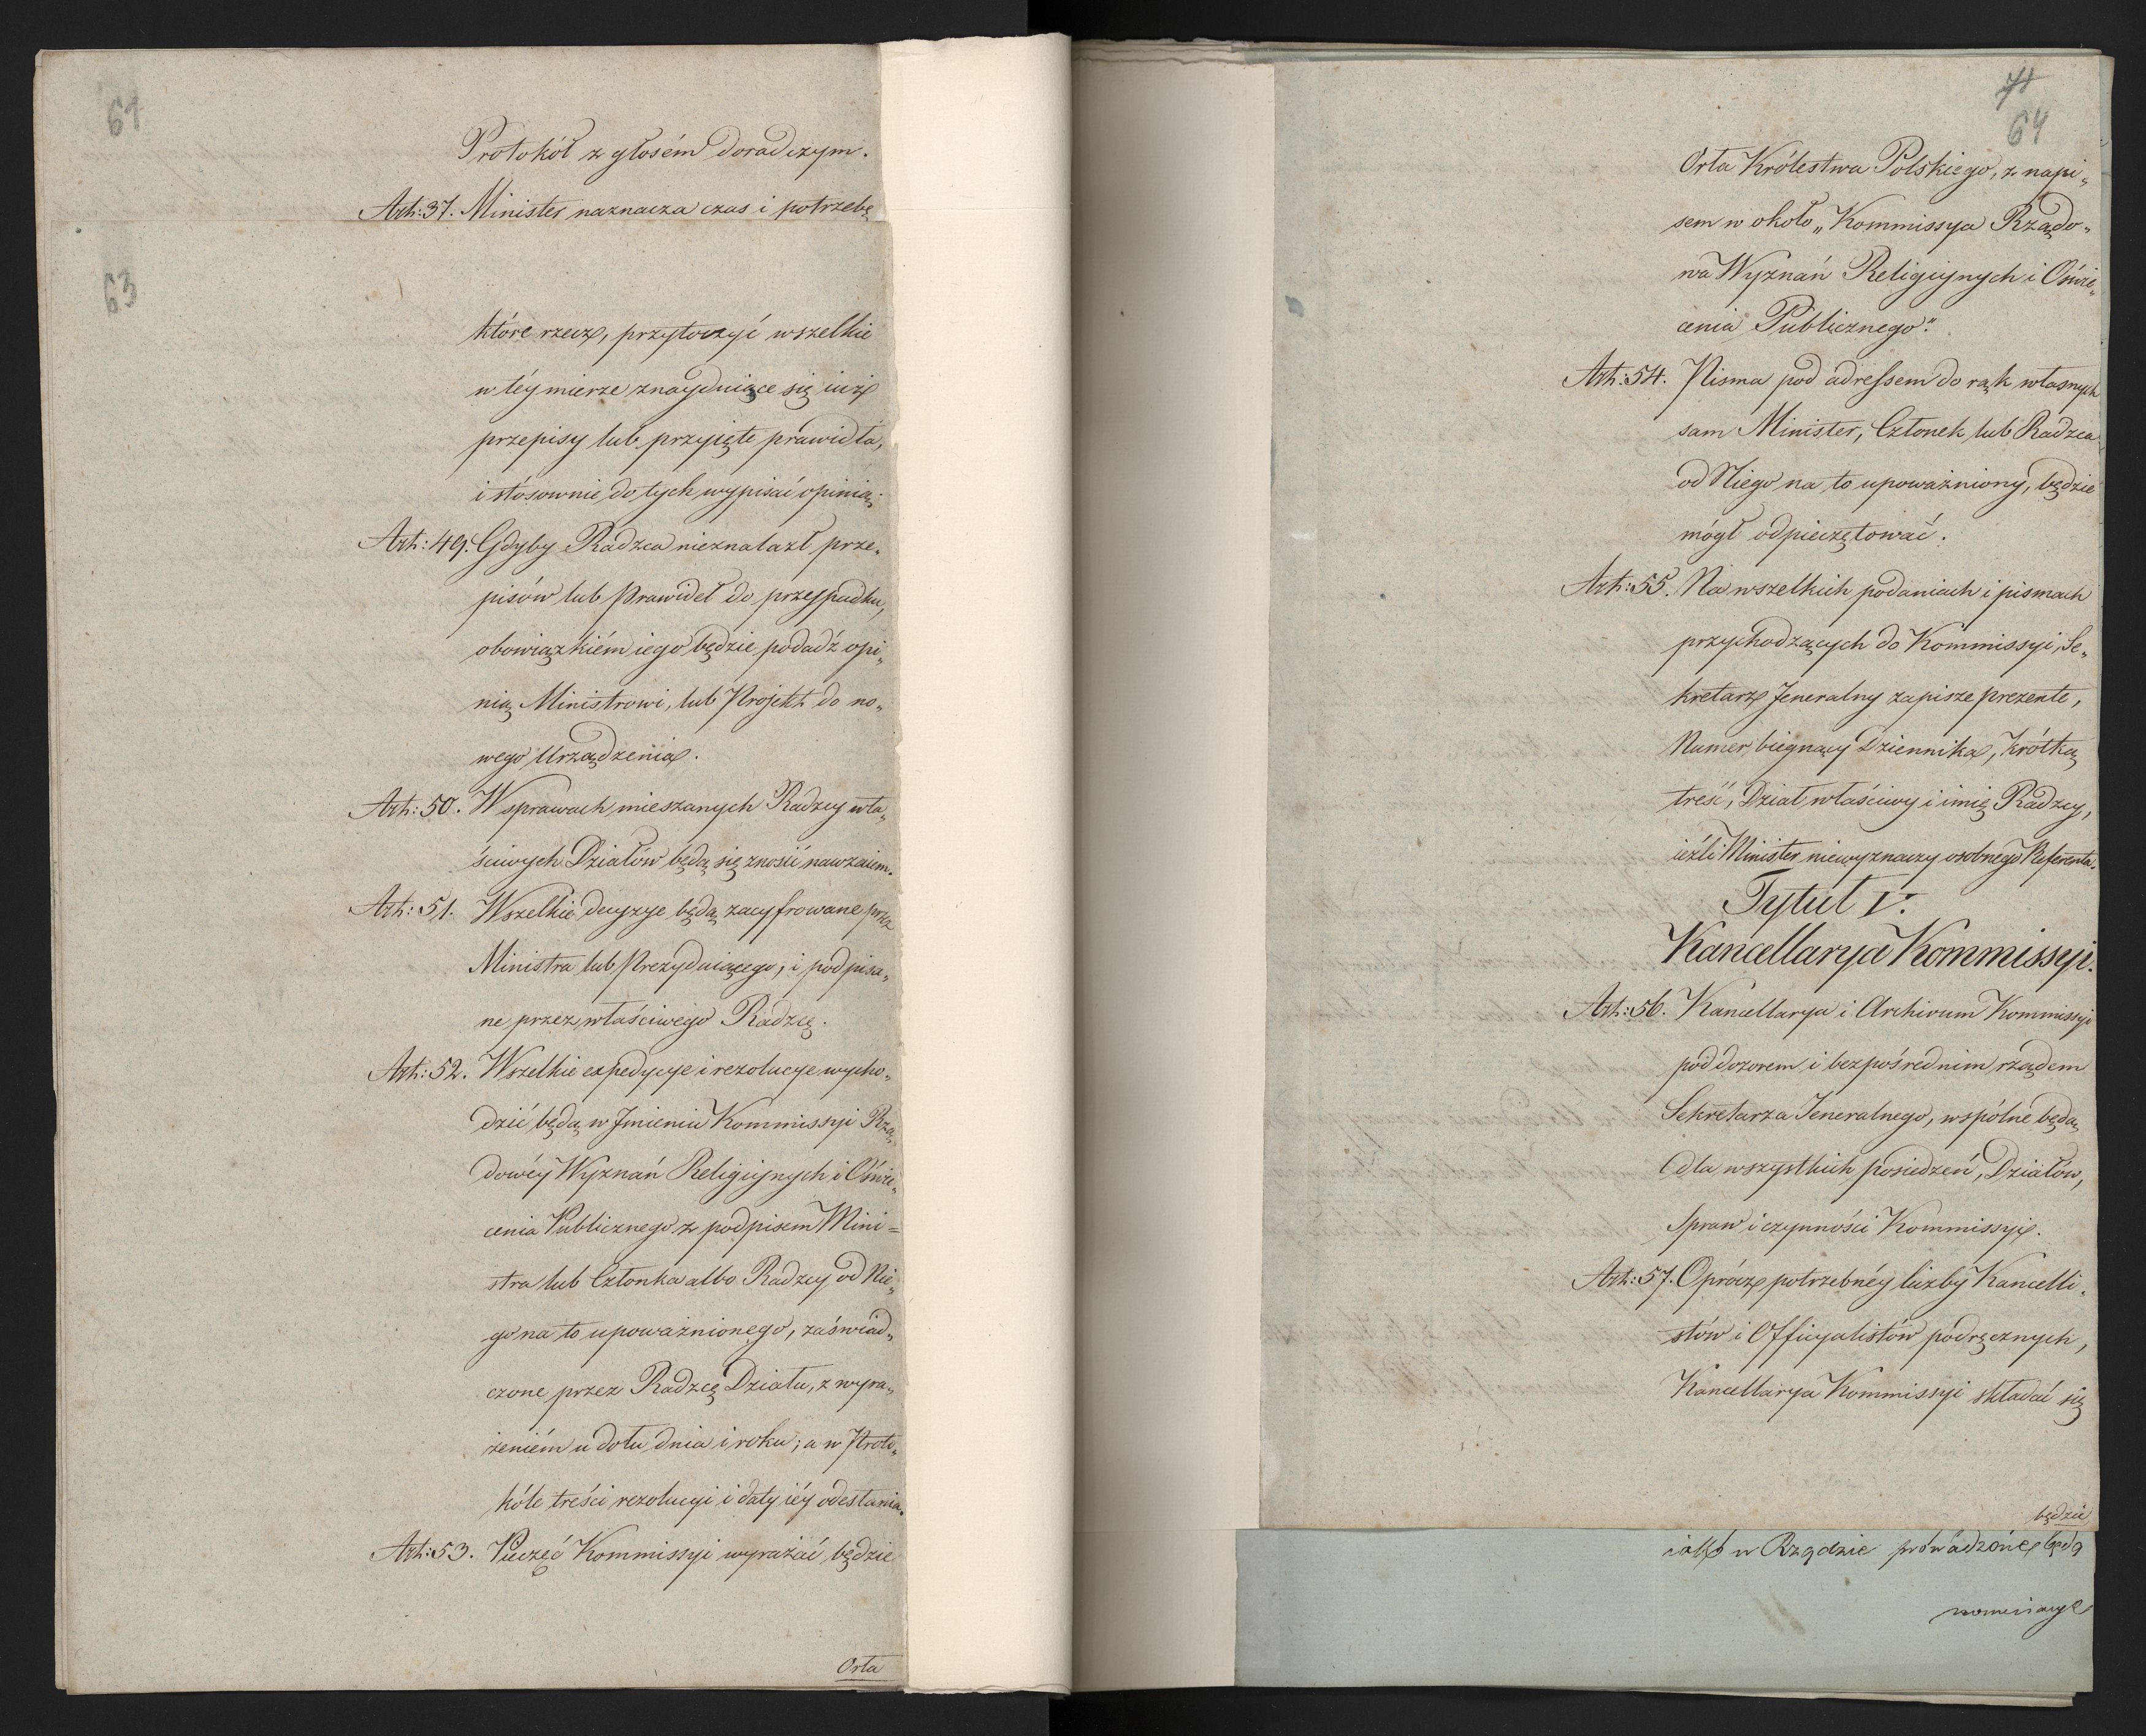 61
Protokół z głosém doradczym.
Art: 37. Minister naznacza czas i potrzebę
63
które rzecz, przytoczyć wszelkie
w téy mierze znayduiące się iuż
przepisy lub przyięte prawidła,
i stósownie do tych wypisać opinią.
Art: 49. Gdyby Radzca nieznalazł prze„
pisów lub prawideł do przypadku,
obowiązkiém iego będzie podadź opi„
nią Ministrowi, lub Projekt do no„
wego Urządzenia.
Art: 50. W sprawach mieszanych Radzcy wła„
ściwych Działów będą się znosić nawzaiem.
Art: 51. Wszelkie decyzye będą zacyfrowane przez
Ministra lub Prezyduiącego, i podpisa„
ne przez właściwego Radzcę.
Art: 52. Wszelkie expedycye i rezolucye wycho„
dzić będą w Jmieniu Kommissyi Rzą„
dowéy Wyznań Religiynych i Oświe„
cenia Publicznego z podpisem Mini=
stra lub Członka albo Radzcy od Nie„
go na to upoważnionego, zaświad„
czone przez Radzcę Działu, z wyra„
żeniém u dołu dnia i roku; a w Proto„
kóle treści rezolucyi i daty iéy odesłania.
Art: 53. Pieczęć Kommissyi wyrażać będzie
Orła
71
64
Orła Królestwa Polskiego, z napi„
sem w około „Kommissya Rządo„
wa Wyznań Religiynych i Oświe„
cenia Publicznego."
Art: 54. Pisma pod adressem do rąk własnych
sam Minister, Członek lub Radzca
od Niego na to upoważniony, będzie
mógł odpieczętować.
Art: 55. Na wszelkich podaniach i pismach
przychodzących do Kommissyi, Se„
kretarz Jeneralny zapisze prezente,
Numer biegnący Dziennika, krótką
treść, Dział właściwy i imię Radzcy,
ieźli Minister niewyznaczy osobnego Referenta.
Tytuł V.
Kancellarya Kommissyi.
Art: 56. Kancellarya i Archivum Kommissyi
pod dozorem i bezpośrednim rządem
Sekretarza Jeneralnego, wspólne będą
dla wszystkich posiedzeń, Działów,
Spraw i czynności Kommissyi.
Art: 57. Oprócz potrzebnéy liczby Kancelli„
stów i Officyalistów podręcznych,
Kancellarya Kommissyi składać się
będzie
iako w Rządzie prowadzone będą
nominacye